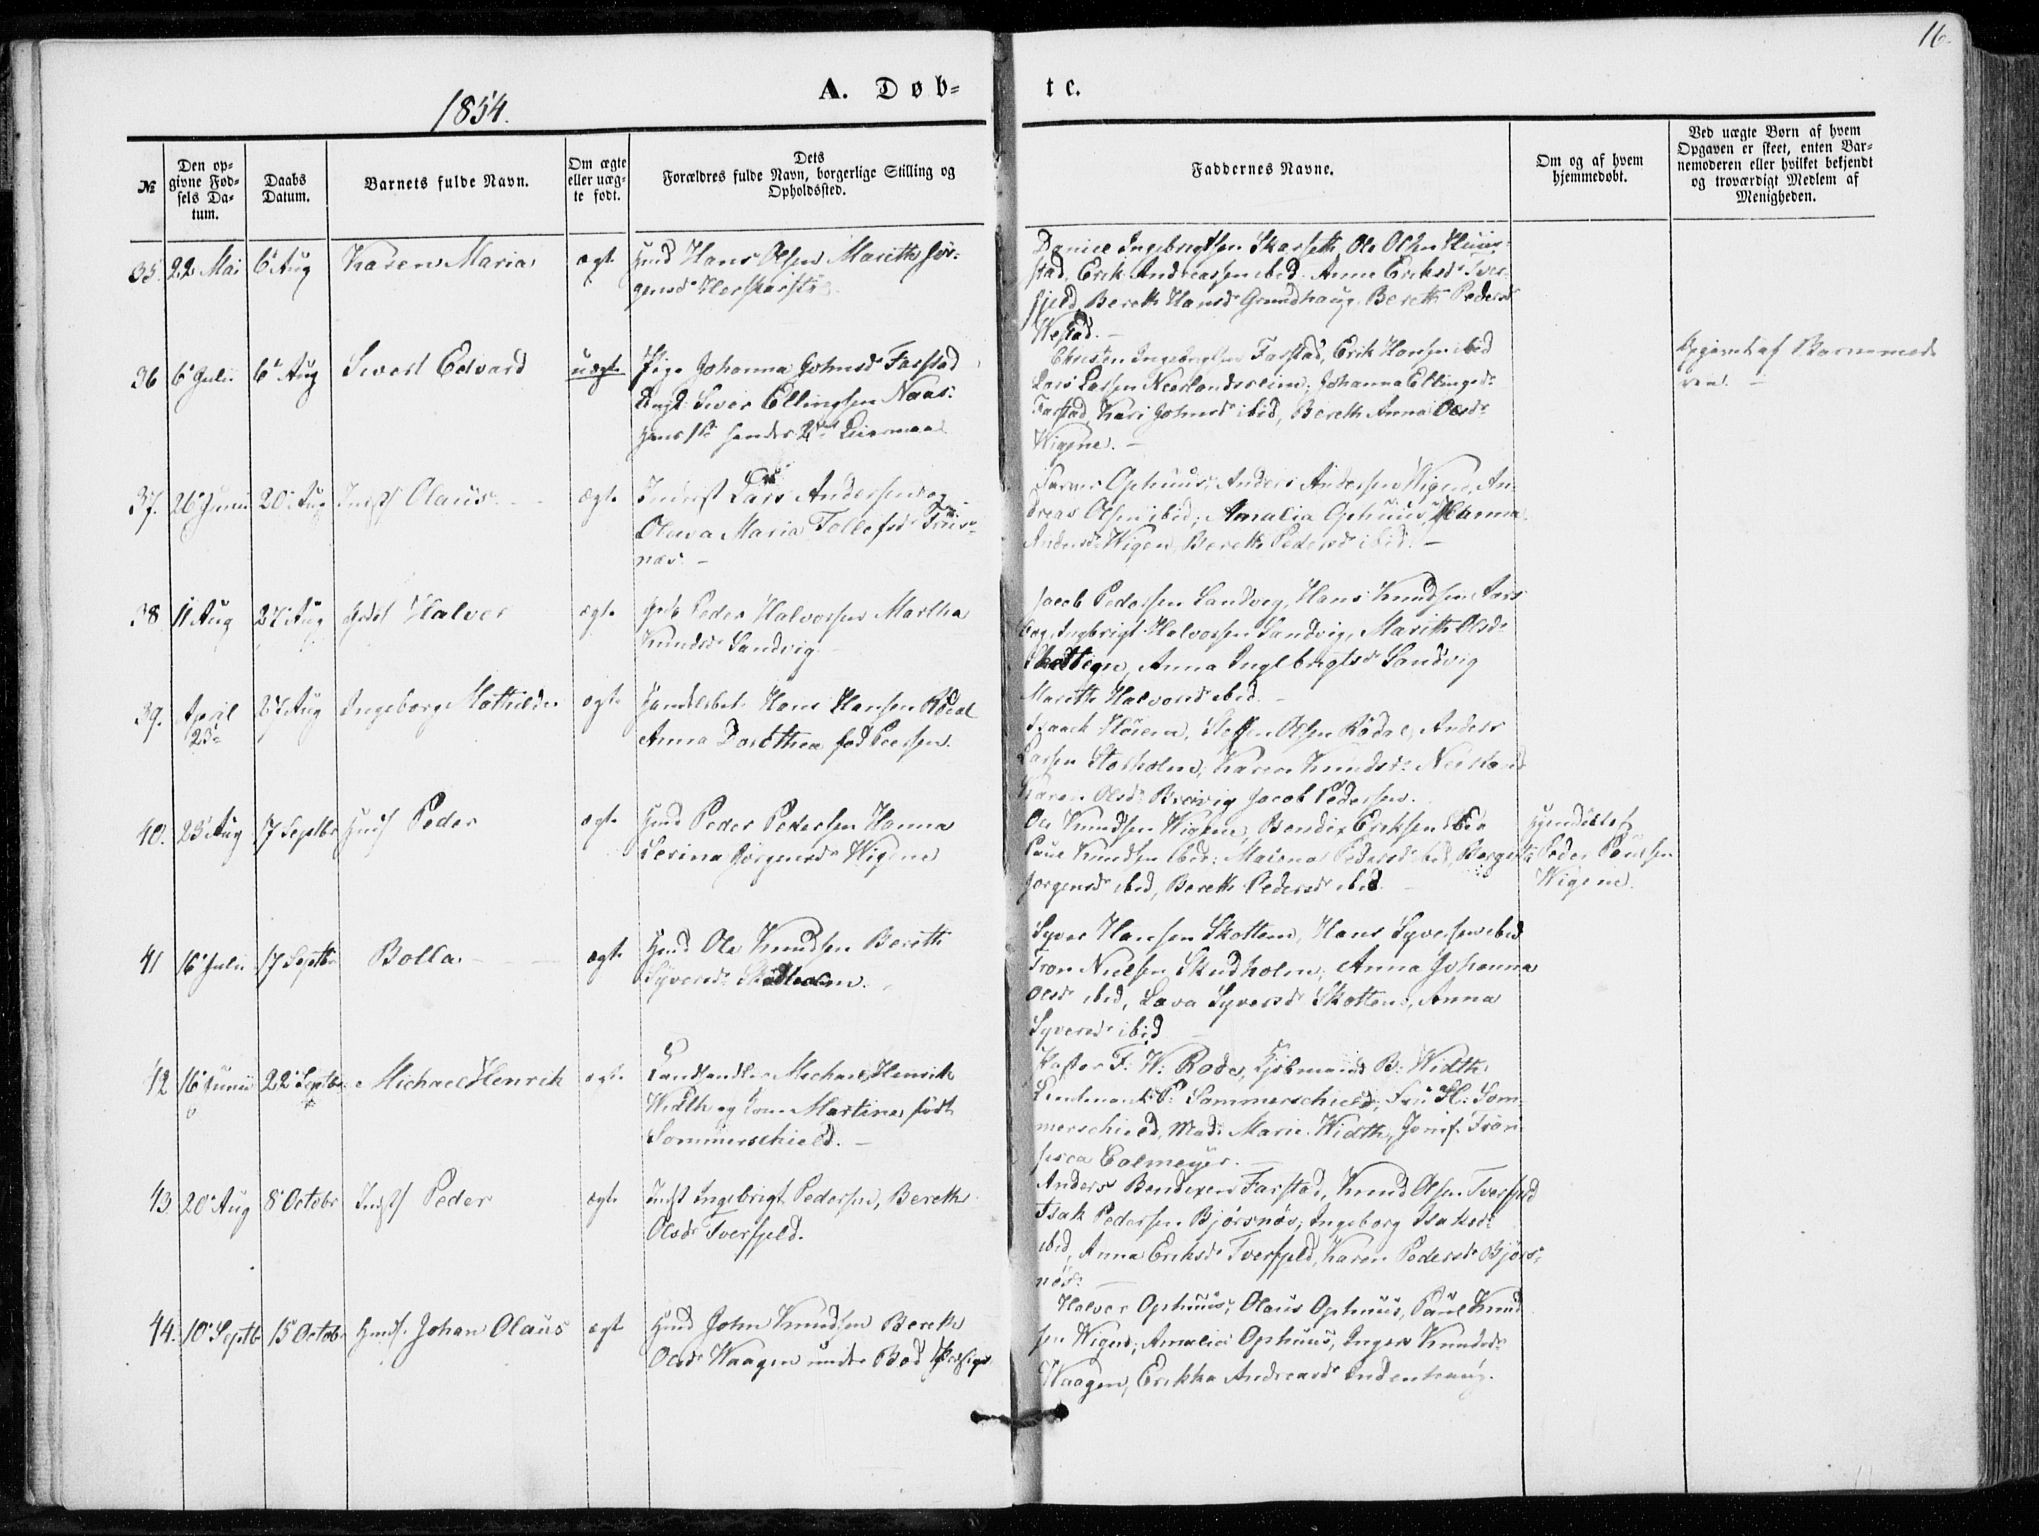 16.
1854.
A. Døb-
te.
№
Den opgivne Fødsels Datum.
Daabs Datum.
Barnets fulde Navn.
Om ægte eller uægte født.
Dets Forældres fulde Navn, borgerlige Stilling og Opholdssted.
Faddernes Navne.
Om og af hvem hjemmedøbt.
Ved uægte Børn af hvem Opgaven er skeet, enten Barnemoderen eller hvilket bekjendt og troværdigt Medlem af Menigheden.
35. 22 Mai 6 Aug Karen Maria ægt
Hmd Hans Olsen Marith Jør-
gensd
Ingebrigtsen Skarseth, Ole Olsen
stad, Erik Andreassen ibid. Anne Eriksd. Tver-
fjeld, Bereth Hansd. Grundhaug, Bereth Pedersd
Westad.
36 6 Juli 6 Aug Sivert Edvard uægte
Pige Johanna Johnsd. Farstad
Ungk. Siver Ellingsen Naas:
hans 1ste hendes 2det Leiermaal
Christen Ingebrigtsen Farstad, Erik Hansen ibid
Lars Larsen Neerlandsreim; Johanna Ellingsd.
Farstad, Kari Johnsd. ibid, Bereth Anna Olsd.
Wigene.
af Barnemode
ren.
37. 26 Juni 20 Aug Olaus ægte
Lars Andersen og
Oluva Maria Tollefsd.
næs.
Ophuus, Anders Andersen Wigen, An-
dreas Olsen ibid; Amalia Ophuus, Hanna
Andersd. Wigen, Bereth Pedersd. ibid.
38 11 Aug 27 Aug Halvor ægte
Peder Halvorsen Martha
Knudsd. Sandvig
Jacob Pedersen Sandvig, Hans Knudsen
Ingebrigt Halvorsen Sandvig, Marith Olsd.
Anna Ingebrigtsd. Sandvig
Marith Halvorsd. ibid.
39. April 25 27 Aug Ingeborg Mathilde ægte
Handelsbet. Hans Hansen Rødal
Anna Dorothea fød Peersen.
Isaach Høiem, Steffen Olsen Rødal, Anders
Larsen Storholm, Karen Knudsd. Neerland
Karen Olsd. Breivig Jacob Pedersen.
40. 23 Aug 17 Septbr Peder ægte
Hmd Peder Pedersen Hanna
Serina Jørgensd. Wigene
Ole Knudsen Wigene, Bendix Eriksen ibid
Paul Knudsen ibid: Malena Pedersd. ibid,
Jørgensd. ibid, Bereth Pedersd. ibid.
Hjemdøbt af
Peder Paulsen
Wigene.
41 16 Juli 17 Septbr Bolla. ægte
Hmd Ole Knudsen Bereth
Syversd. Skudholm.
Syver Hansen Skottem, Hans Syversen ibid
Tron Nielsen Skudholm; Anna Johanna
Olsd ibid, Lava Syversd. Skottem, Anna
Syversd. ibid
42 16 Junii 22 Septbr Michael Henrik ægte
Landhandler Michael Henrik
Width og Martine født
Sommerschield.
Pastor F: W: Rode, Kjøbmand B: Width
P: Sommerschield, Fru H: Som-
merschield, Mad. Marie Width, Jomf. Fran-
sisca Colmeyer.
43 20 Aug 8 Octobr Peder ægte
Ingebrigt Pedersen, Bereth
Olsd. Tverfjeld.
Anders Bendixen Farstad, Knud Olsen Tverfjeld
Isak Pedersen Bjørsnøs; Ingeborg Isaksd.
ibid, Anna Eriksd. Tverfjeld, Karen Pedersd. Bjørs-
nøs.
44. 10 Septb 15 Octobr Johan Olaus ægt
Hmd John Knudsen Bereth
Olsd. Waagen under Bod
Halvor Ophuus, Olaus Ophuus, Paul Knud
sen Wigene; Amalia Ophuus, Inger Knudsd.
Waagen, Erikka Andreasd. Indenhaug.